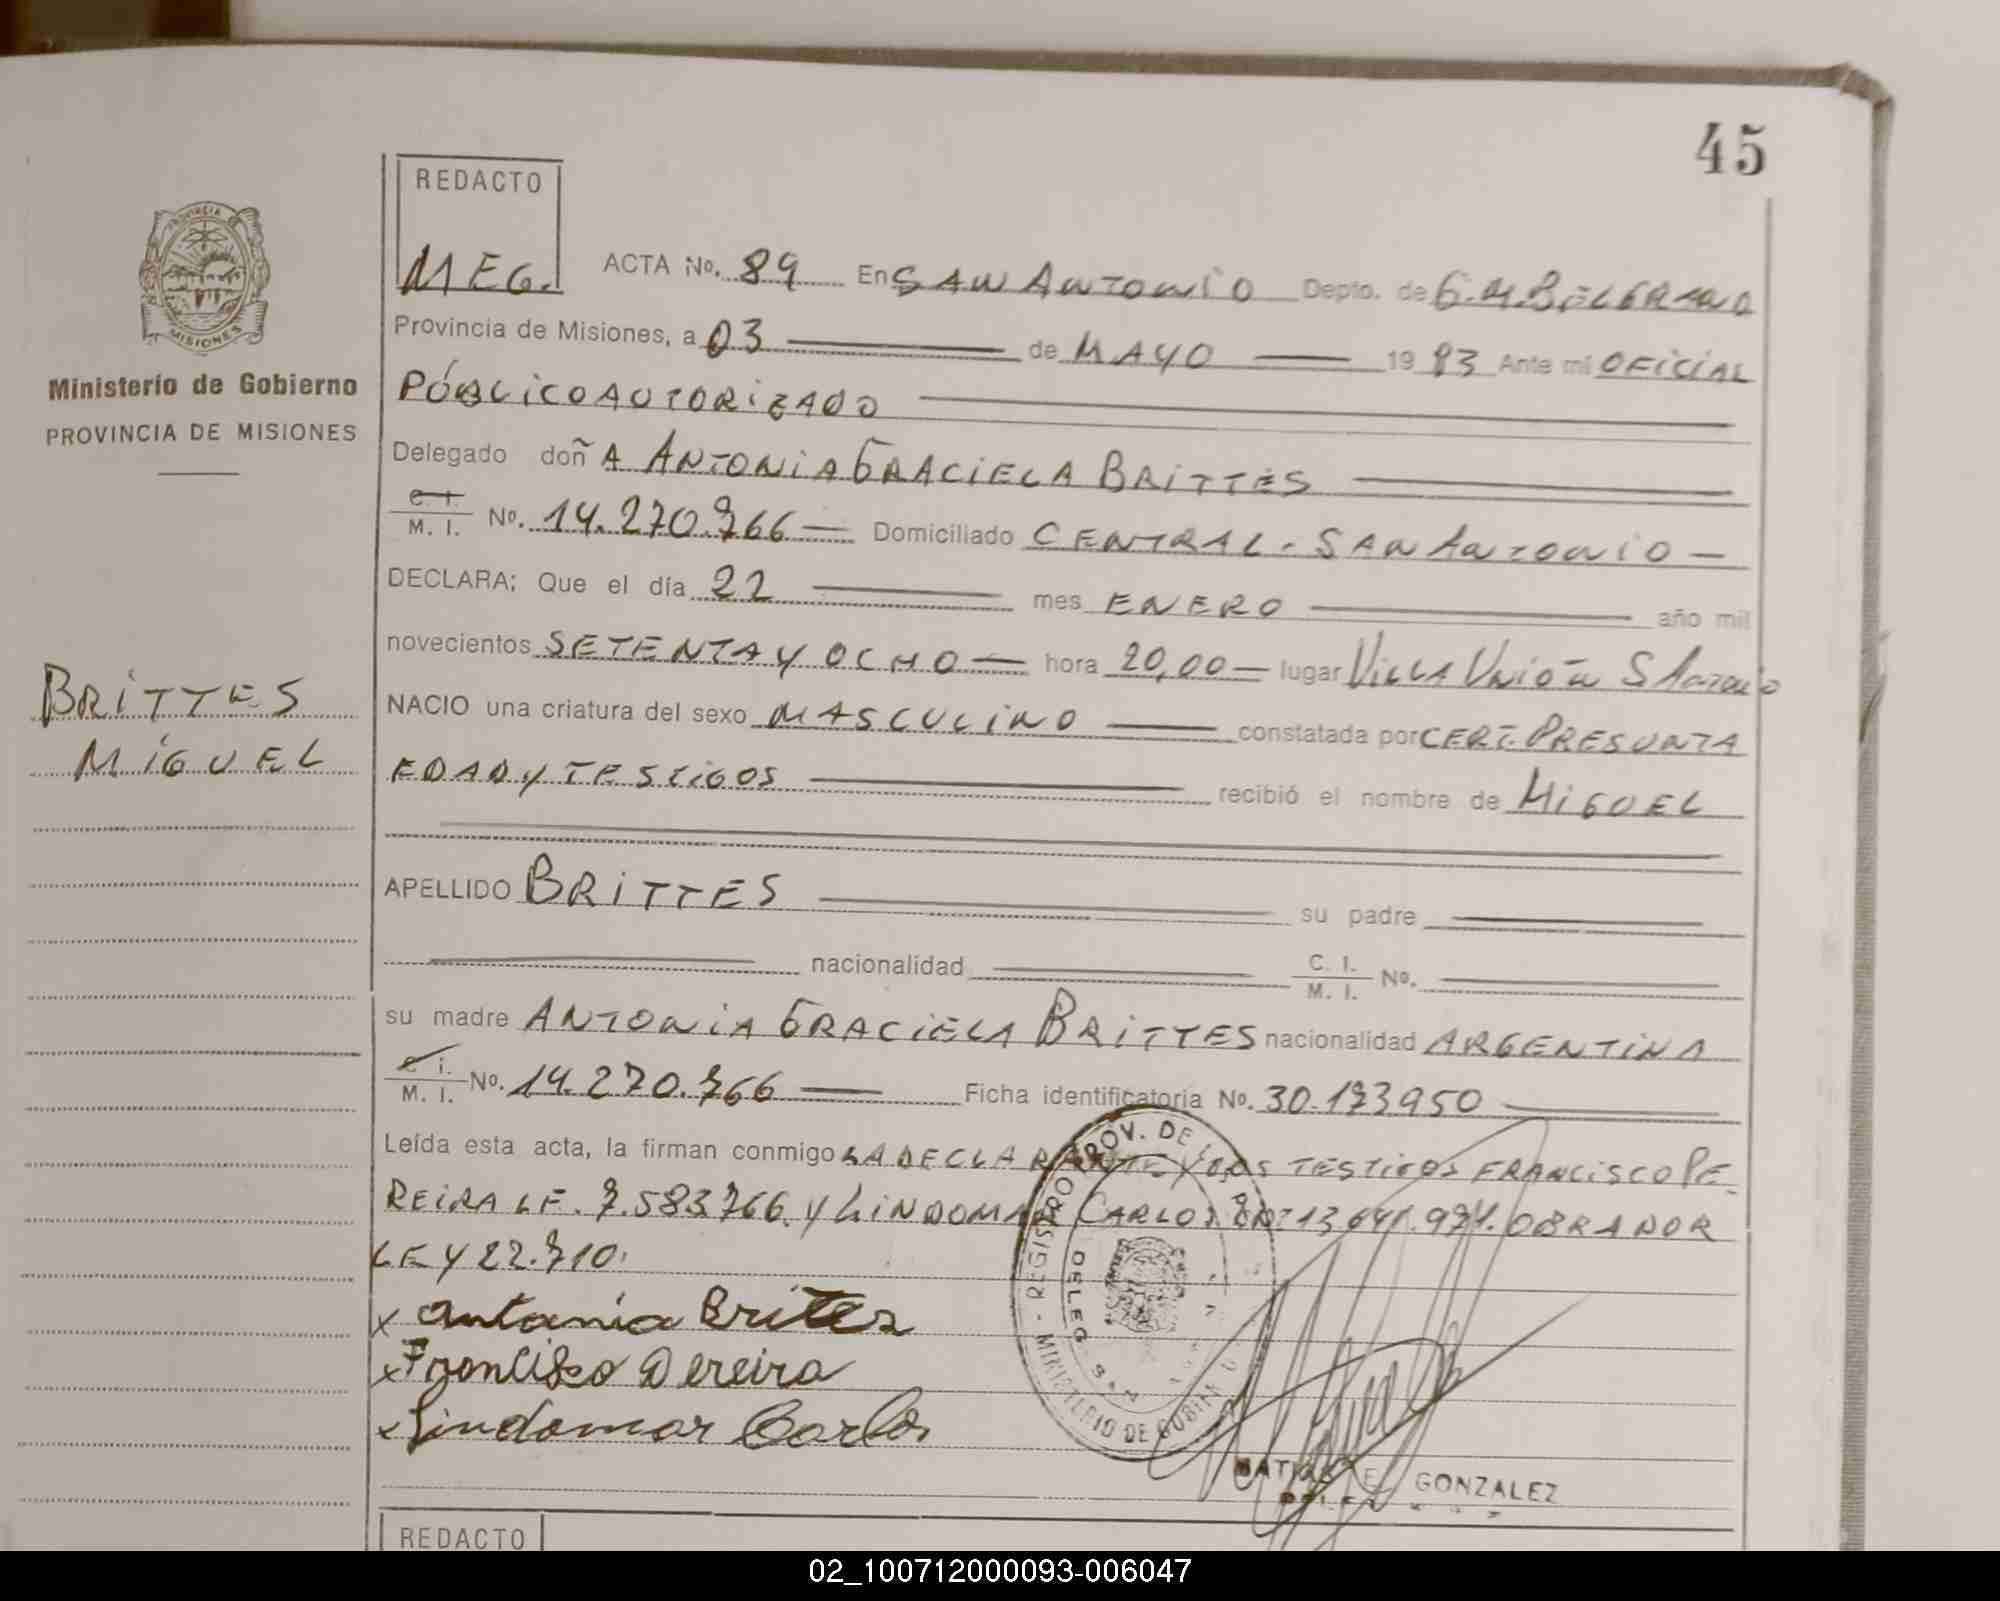 45
REDACTO
MEG.
ACTA No. 89 En SAN ANTONIO Depto. de G.M.BELGRANO
Provincia de Misiones, a 03 de MAYO 1983 Ante mi OFICIAL
PÚBLICO AUTORIZADO
Ministerio de Gobierno
PROVINCIA DE MISIONES
Delegado doñA ANTONIA GRACIELA BRITTES
C. I.
M. I. No. 14.270.766 Domiciliado CENTRAL - SAN ANTONIO -
DECLARA; Que el día 22 mes ENERO año mil
novecientos SETENTA Y OCHO hora 20,00 lugar VILLA UNIÓN S ANTONIO
NACIO una criatura del sexo MASCULINO constatada por CERT. PRESUNTA
EDAD y TESTIGOS recibió el nombre de MIGUEL
BRITTES
MIGUEL
APELLIDO BRITTES su padre
nacionalidad C. I.
M. I. No.
su madre ANTONIA GRACIELA BRITTES nacionalidad ARGENTINA
C. I.
M. I. No. 14.270.766 Ficha identificatoria No. 30.173950
Leída esta acta, la firman conmigo LA DECLARANTE Y LOS TESTIGOS FRANCISCO PE-
REIRA LE. 7.583.766. y LINDOMAR CARLOS 13.641.971. OBRADOR
LEY 22.710.
x Antonia Brites
x Francisco Pereira
x Lindomar Carlos
REGISTRO PROV. DE
MINISTERIO DE GOBIER
DELEG. SAN
MATIAS E GONZALEZ
REDACTO
02_100712000093-006047